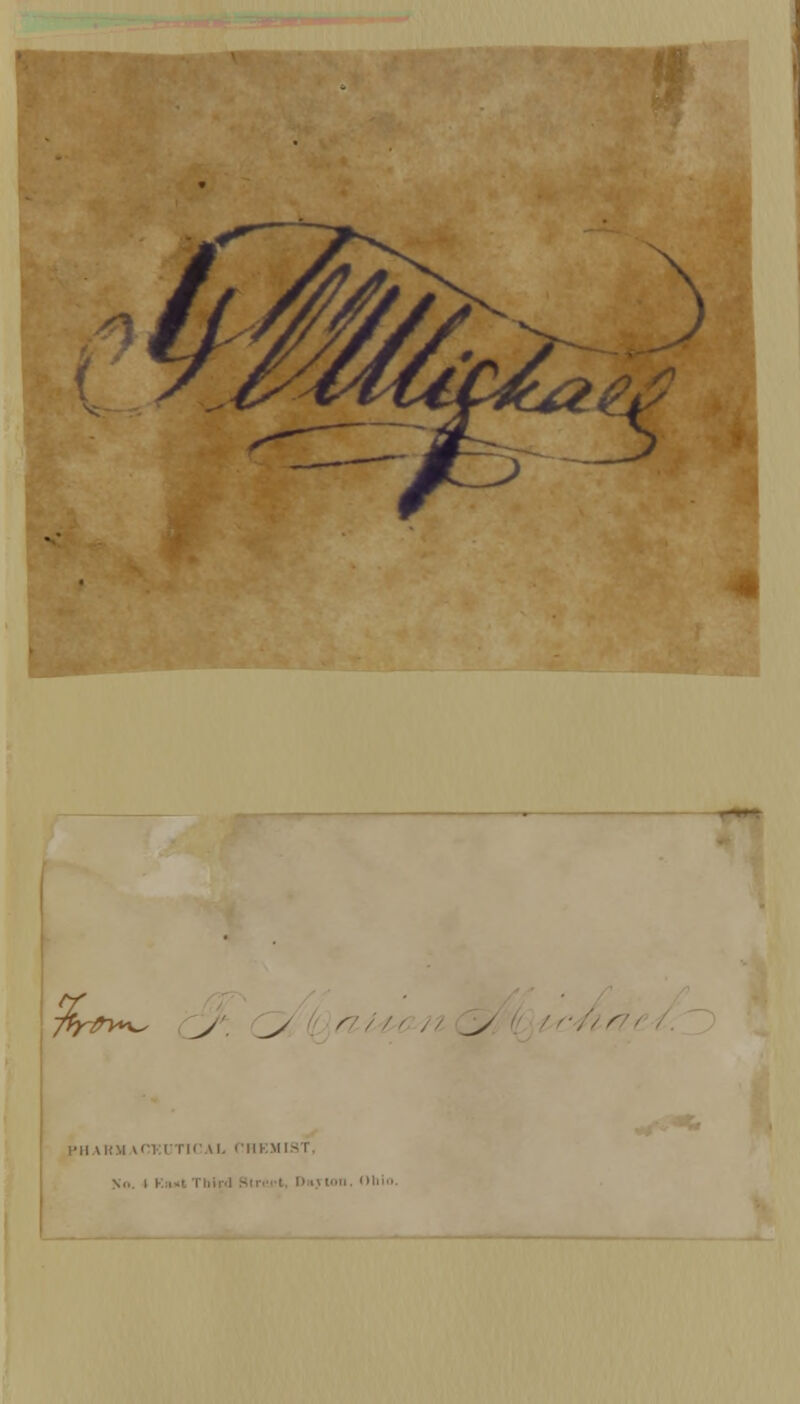 Michael
From F. Marion Michael.
PHARMACEUTICAL CHEMIST,
No. 4 East Third Street, Dayton, Ohio.